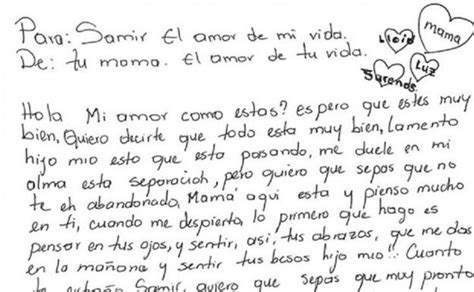 Para: Samir El amor de mi vida.
De: tu mama. El amor de tu vida.
mama
Luz
Hola Mi amor como estas? espero que estes muy
bien, Quiero decirte que todo esta muy bien, lamento
hijo mio esto que esta pasando, me duele en mi
alma esta separacion, pero quiero que sepas que no
te eh abandonado, Mamá aqui esta y pienso mucho
en ti, cuando me despierto lo primero que hago es
pensar en tus ojos, y sentir, asi, tus abrazos, que me das
en la mañana y sentir tus besos hijo mio!! Cuanto
te extraño Samir, quiero que sepas que muy pronto